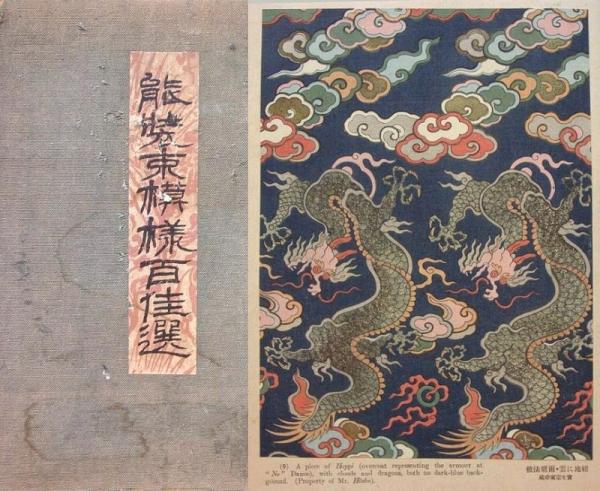 能装束模様百佳選
(9) A piece of Happi (overcoat representing the armour at
"No" Dance), with clouds and dragons, both on dark-blue back-
ground. (Property of Mr.
紺地に雲・雨龍法被